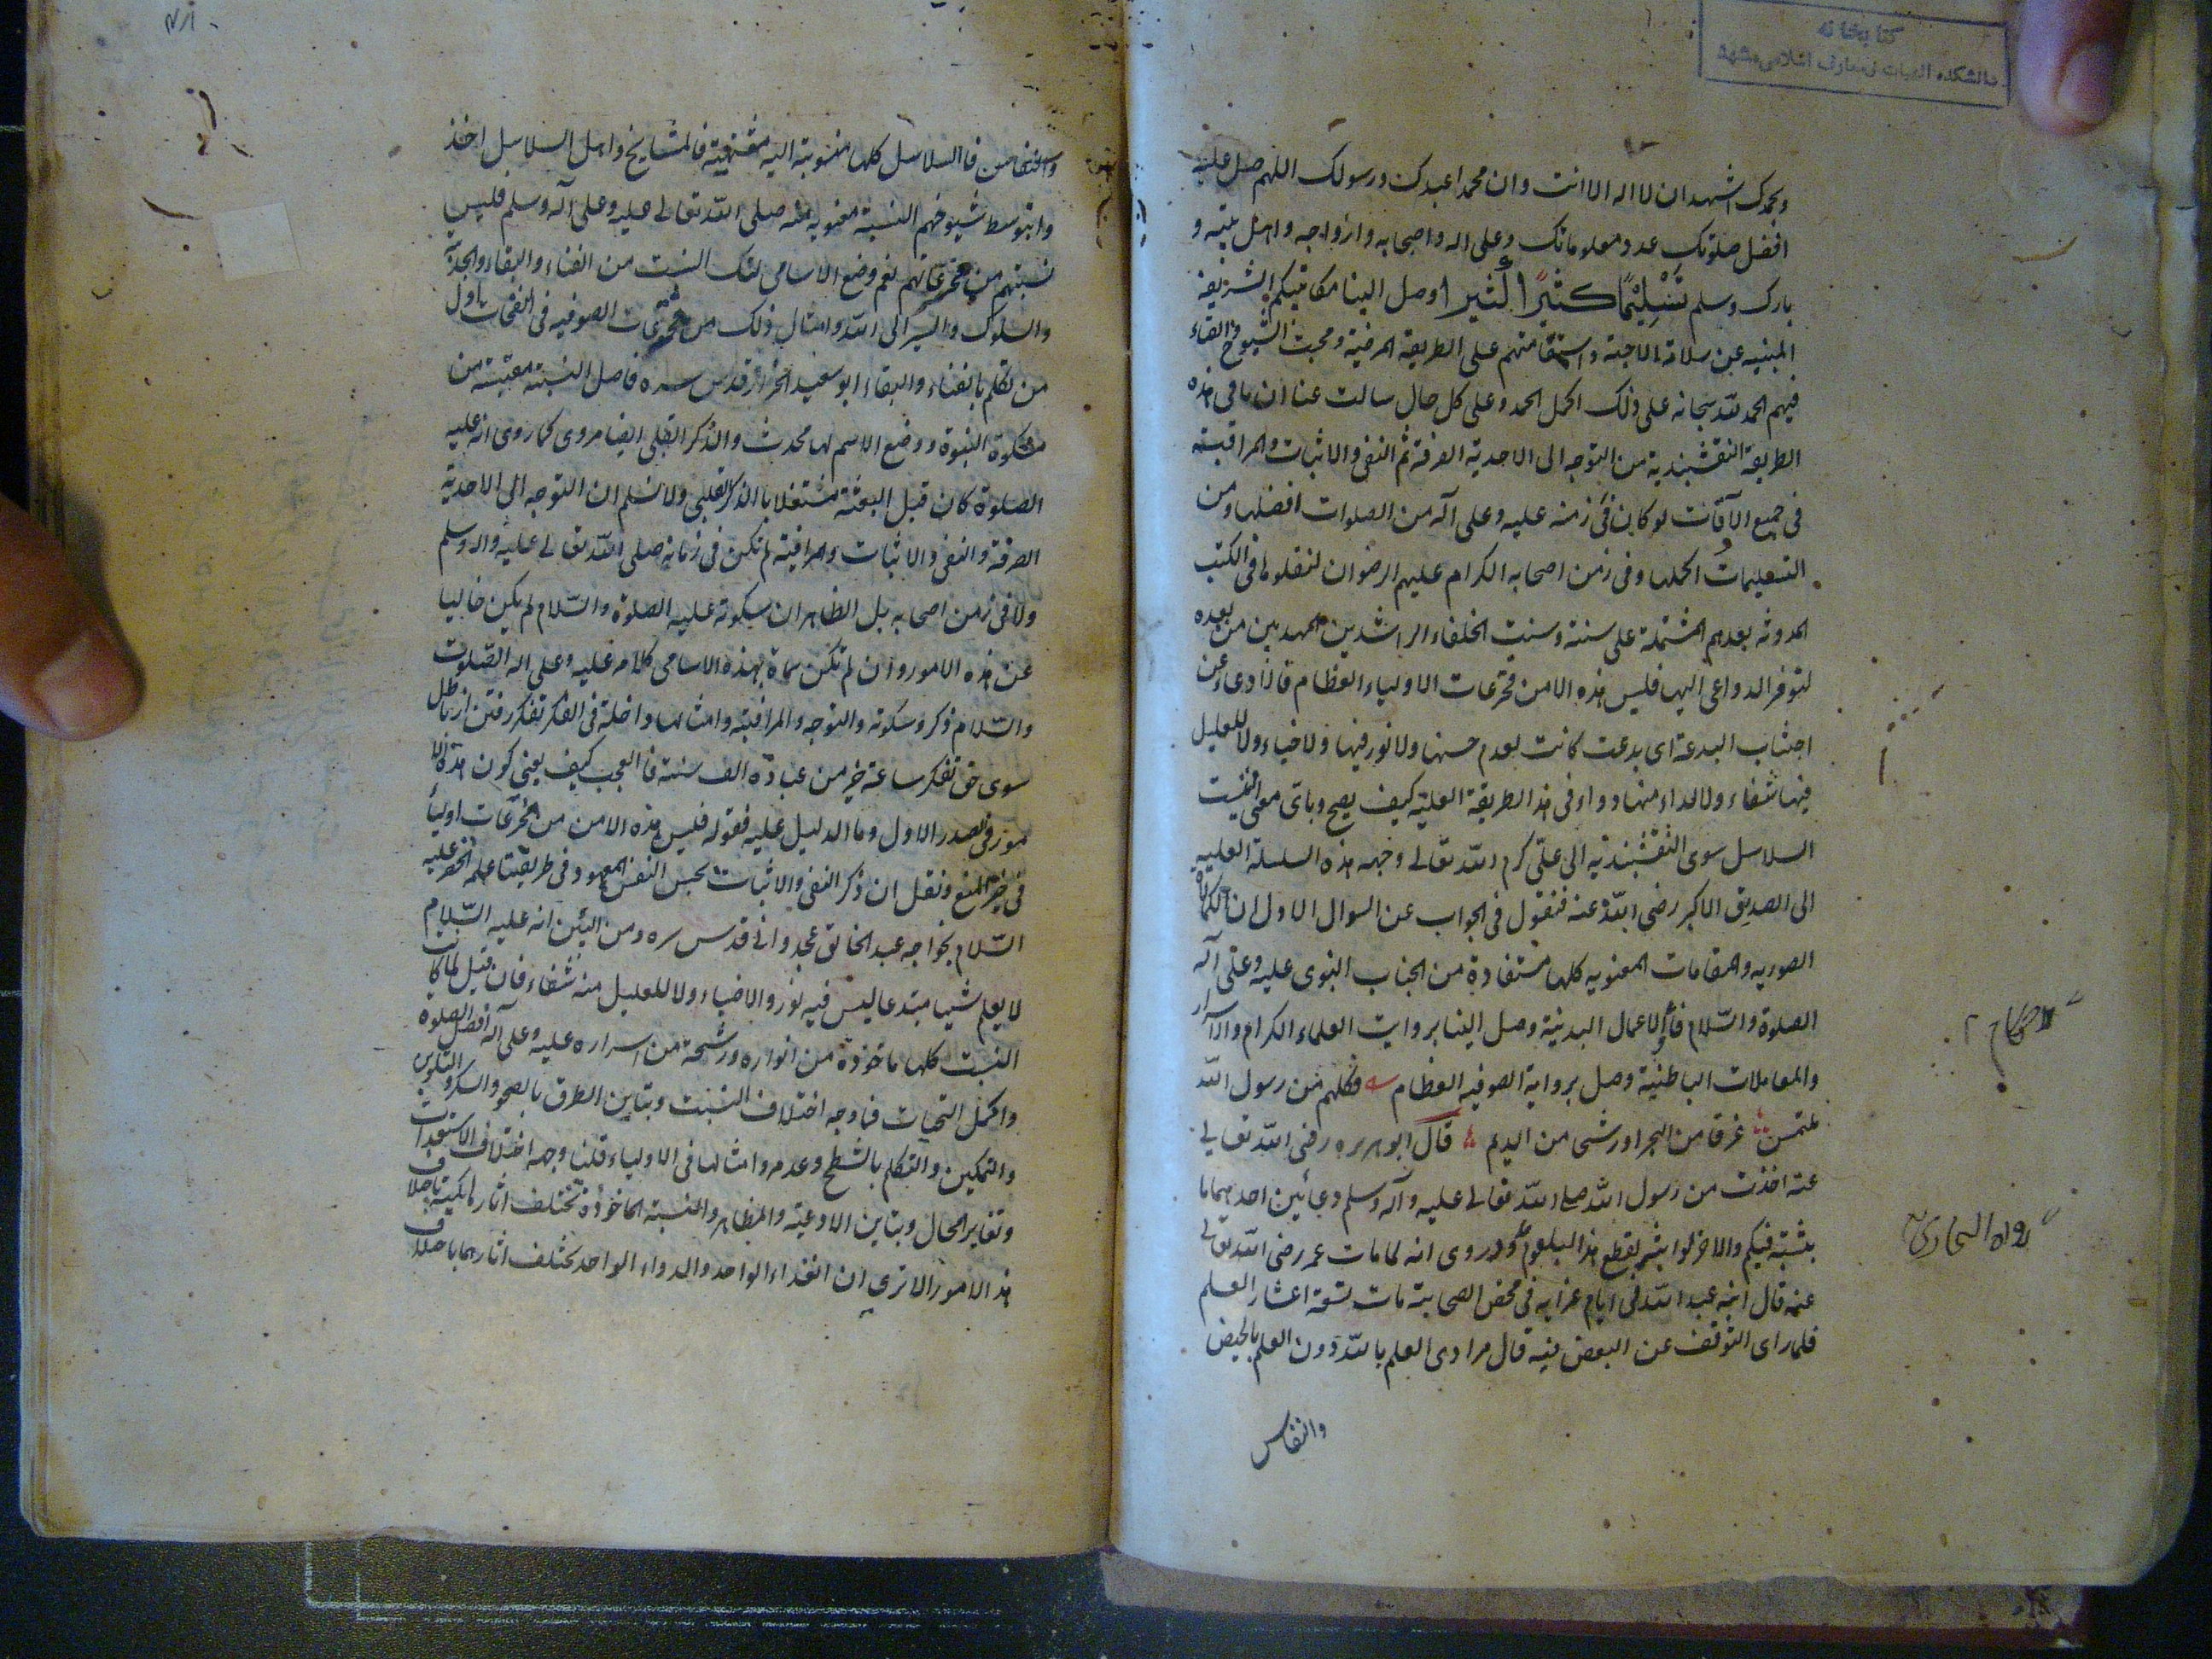 كتابخانه
دانشكده الهيات و معارف اسلامى مشهد
وبحمدك اشهد ان لا اله الا انت وان محمدا عبدك ورسولك اللهم صل عليه
افضل صلوتك عدد معلوماتك وعلى اله واصحابه وازواجه واهل بيته و
بارك وسلم تَسْلِيْمًا كثيرًا كثيرا وصل الينا مكاتيبكم الشريفة
المبنيه عن سلامة الاحبة واستقامتهم على الطريقة المرضية ومحبت الشيوخ القاء
فيهم الحمد لله سبحانه على ذلك اكمل الحمد وعلى كل حال سالت عنا ان ما فى هذه
الطريقة النقشبندية من التوجه الى الاحدية الصرفة ثم النفى والاثبات والمراقبة
فى جميع الآفات لو كان فى زمنه عليه وعلى آله من الصلوات افضلها ومن
التسليمات اكملها وفى زمن اصحابه الكرام عليهم الرضوان لنقلوها فى الكتب
المدونه بعدهم المشتملة على سنته وسنت الخلفاء الراشدين المهديين من بعده
لتوفر الدواعى اليها فليس هذه الا من مخترعات الاولياء العظام فاذا وعن
اجتناب البدعة اى بدعت كانت لعدم حسنها ولا نور فيها ولا ضياء ولا للعليل
فيها شفاء ولا لداء منها دواء وفى هذا الطريقة العلية كيف يصح وباتى معنى انتسبت
السلاسل سوى النقشبندية الى على كرم الله تعالى وجهه هذه السلسلة العليه
الى الصديق الاكبر رضى الله عنه فنقول فى الجواب عن السوال الاول ان الكمالات
الصوريه والمقامات المعنويه كلها مستفادة من الجناب النبوى عليه وعلى آله
الصلوة والسّلام فالاعمال البدنية وصل الينا بروايت العلماء الكرام والاسرار
والمعاملات الباطنية وصل برواية الصوفيه العظام فكلهم من رسول الله
ملتمس غرفا من البحر او رشى من الديم قال ابو هريره رضى الله تعالى
عنه اخذت من رسول الله صلى الله تعالى عليه وآله وسلم وعائين احدهما ما
بثثته فيكم والاخر لو ابثه لقطع هذا البلعوم وروى انه لما مات عمر رضى الله تعالى
عنه قال ابنه عبد الله فى ايام عزايه فى محضر الصحابة مات تسعة اعشار العلم
فلما راى التوقف عن البعض فيه قال مرادى العلم بالله دون العلم بالحيض
والنفاس
الاحكام ٢
رواه البخارى
والنفاس فالسلاسل كلها منسوبة اليه منتهية فالمشايخ واهل السلاسل اخذ
وا بتوسط شيوخهم النسبة معنويه منه صلى الله تعالى عليه وعلى آله وسلم فليس
نسبتهم من مخترعاتهم نعم وضع الاسامى لتلك النسبت من الفناء والبقاء والجذبة
والسلوك والسير الى الله وامثال ذلك من مخترعات الصوفيه فى النفحات اول
من تكلم بالفناء والبقاء ابو سعيد الخراز قدس سره فاصل النسبة مقتبسة من
مشكوة النبوة ووضع الاسم لها محدث والذكر القلبى ايضا مروى كما روى انه عليه
الصلوة كان قبل البعثة مشتغلا بالذكر القلبى ولا نسلم ان التوجه الى الاحدية
الصرفة والنفى والاثبات والمراقبة لم تكن فى زمانه صلى الله تعالى عليه واله وسلم
ولا فى زمن اصحابه بل الظاهر ان سكوته عليه الصلوة والسّلام لم يكن خاليا
عن هذه الامور وان لم تكن سماة بهذه الاسامى كلامه عليه وعلى اله الصّلوات
والسّلام ذكر وسكوته والتوجه والمراقبة وامثالها داخلة فى الفكر تفكر رفتن از باطل
سوى حق تفكر ساعة خير من عبادة الف سنة فالعجب كيف يعنى كون هذه الا
مور فى الصدر الاول وما الدليل عليه فقوله فليس هذه الا من مخترعات اوليأ
فى حيز المنع ونقل ان ذكر النفى والاثبات بحبس النفس المعهود فى طريقتنا علّمه الخضر عليه
السّلام بخواجه عبد الخالق غجدوانى قدس سره ومن البيّن انه عليه السّلام
لا يعلم شيا مبتدعا ليس فيه نور ولا ضياء ولا للعليل منه شفاء فان قيل لما كانت
النسبت كلها ماخوذة من انواره ورشحة من اسراره عليه وعلى آله افضل الصلوة
واكمل التحيات فما وجه اختلاف النسبت وتباين الطرق بالصحو والسكر والتلوين
والتمكين والتكلم بالشطح وعدمه وامثالها فى الاولياء قلنا وجهه اختلاف الاستعدادات
وتغاير الحال وتباين الاوعية والمظاهر والنسبة الماخوذة تختلف اثارها كيفية باختلاف
هذ الامور الا ترى ان الغذاء الواحد والدواء الواحد يختلف اثارهما باختلاف